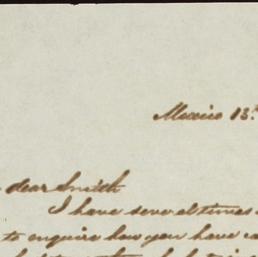 Mexico 13
dear Smith
I have several times
to enquire how you have